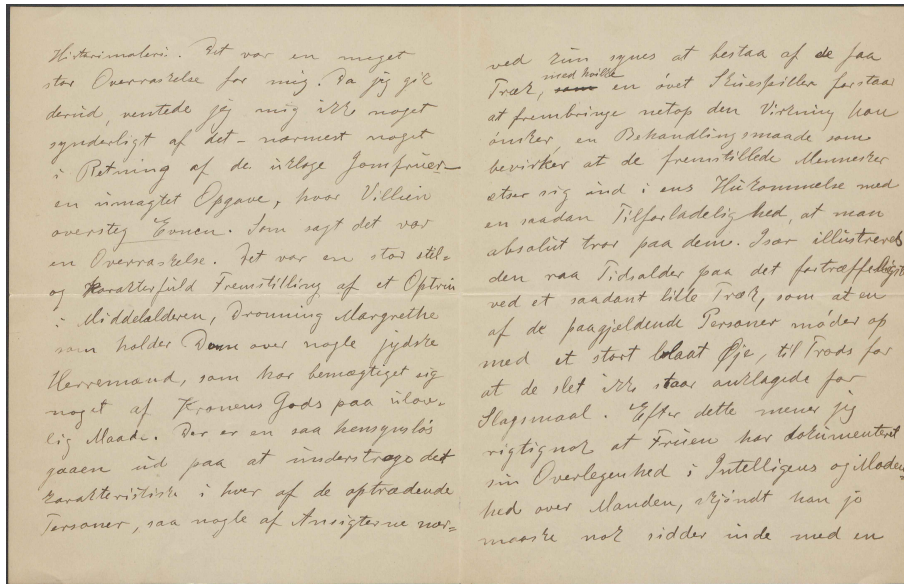 Historimaleri. Det var en meget
stor Overraskelse for mig. Da jeg gik
derud, ventede jeg mig ikke noget
synderligt af det – nærmest noget
i Retning af de ukloge Jomfruer –
en urmagtet Opgave, hvor Villien
oversteg Evnen. Som sagt det var
en Overraskelse. Det var en stor stil-
og karakterfuld Fremstilling af et Optrin
i Middelalderen, Dronning Margrethe
som holder Dom over nogle jydske
Herremænd, som har bemægtiget sig
noget af Kronens Gods paa ulov-
lig Maade. Der er en saa hensynsløs
gaaen ud paa at understrege det
karakteristiske i hver af de optrædende
Personer, saa nogle af Ansigterne nær-
ved kun synes at bestaa af de faa
Træk, som med hvilke en øvet Skuespiller forstaar
at frembringe netop den Virkning han
ønsker, en Behandlingsmaade som
bevirker at de fremstillede Mennesker
ætser sig ind i ens Hukommelse med
en saadan Tilforladelighed, at man
absolut tror paa dem. Især illustreres
den raa Tidsalder paa det fortræffeligste
ved et saadant lille Træk, som at en
af de paagjældende Personer møder op
med et stort blaat Øje, til Trods for
at de slet ikke staar anklagede for
Slagsmaal. Efter dette mener jeg
rigtignok at Fruen har dokumenteret
sin Overlegenhed i Intelligens og Moden-
hed over Manden, skjøndt han jo
maaske nok sidder inde med en